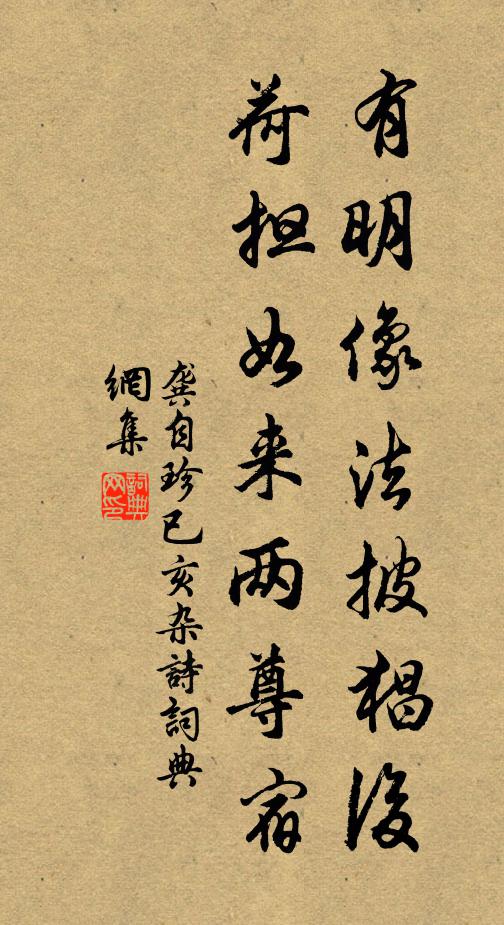 有明像法披猖後
荷担如来两尊宿
龚自珍己亥杂詩詞典
網集
詞典
网印